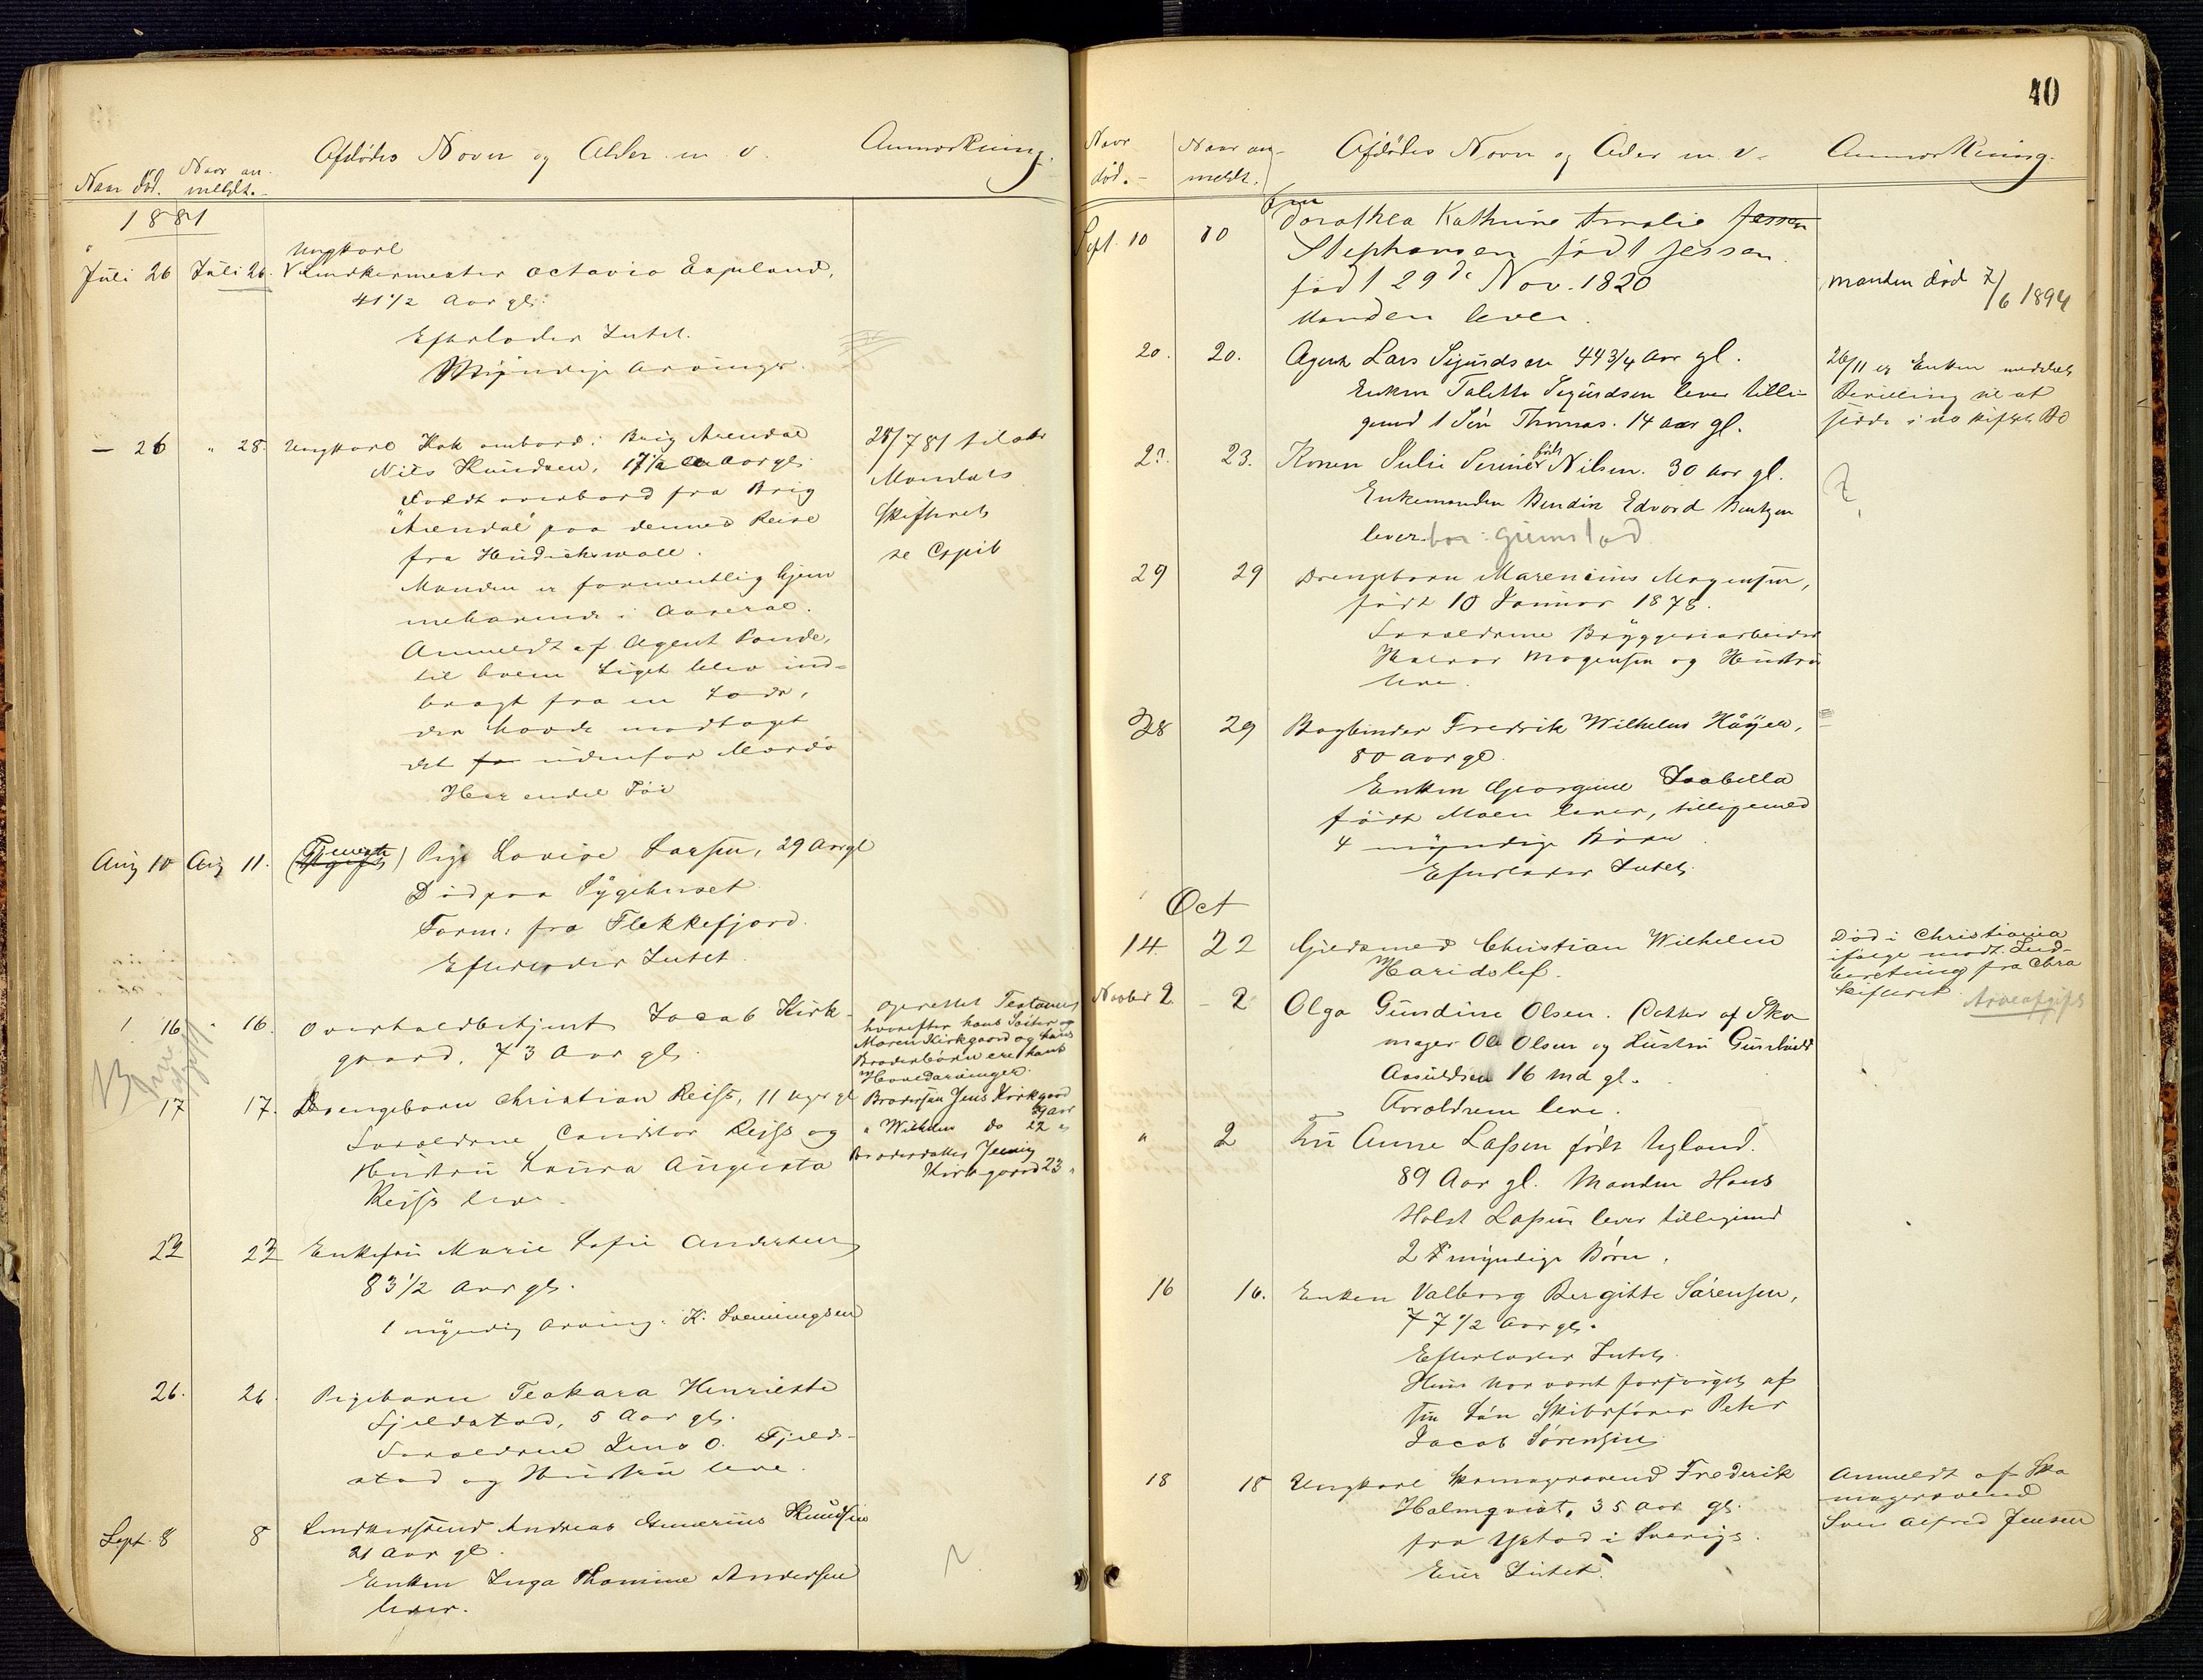 Naar død. Naar an-
meldt.
Afdødes Navn og Alder m. v.
Anmærkning.
1881
Juli 26 Juli 26. Ungkarl
Snedkermester Octavio Espeland,
41 1/2 Aar gl.
Efterlader Intet.
Myndige Arvinger.
— 26 " 28. Ungkarl Kok ombord i Brig Arendal
Niels Knudsen, 17 1/2 Aar gl.
Faldt overbord fra Brig
"Arendal" paa dennes Reise
fra Hudichswall.
Manden er formentlig hjem-
mehørende i Aaseral.
Anmeldt af Agent Bonde,
til hvem Liget blev ind-
bragt fra en Lods,
der havde modtaget
det udenfor Mærdø
Har endel Tøi
28/7 81 tilskr
Mandals
Skifteret
se Copib
Aug 10 Aug 11. (Tjeneste) Pige Lovise Larsen, 29 Aar gl
Død paa Sygehuset
Form: fra Flekkefjord.
Efterlader Intet.
" 16 " 16. Overtoldbetjent Jacob Kirk-
gaard, 73 Aar gl.
oprettet Testament
hvorefter hans Søster
Maren Kirkgaard og hans
Broderbørn ere hans
Hovedarvinger.
Brodersøn Jens Kirkgaard
29 aar
" Wilhelm do 22 "
Broderdatter Jenny
Kirkgaard 23 "
17 17. Drengebarn Christian Reiss, 11 Uger gl
Forældrene Conditor Reiss og
Hustru Laura Augusta
Reiss leve.
22 22 Enkefru Marie Sofie Andersen
83 1/2 Aar gl.
1 myndig Arving: K. Svenningsen
26. 26. Pigebarn Teakara Henriette
Fjeldstad, 5 Aar gl.
Forældrene Jens O. Fjeld-
stad og Hustru leve.
Sept. 8 8 Snedkersvend Andreas Gunerius Knudsen
21 Aar gl.
Enken Inga Thomine Andersen
lever.
40
Naar
død.
Naar an-
meldt.
Afdødes Navn og Alder m. v.
Anmærkning.
Sept. 10 10 Fru
Dorothea Kathrine Amalie Jessen
Stephansen født Jessen.
født 29de Nov. 1820
Manden lever.
manden død 7/6 1894
20. 20. Agent Lars Sigurdsen 44 3/4 Aar gl.
Enken Talette Sigurdsen lever tilli-
gemed 1 Søn Thomas. 14 aar gl.
26/11 er Enken meddelt
Bevilling til at
sidde i uskiftet Bo
2? 23. Konen Julie Serine født Nilsen. 30 Aar gl.
Enkemanden Bendix Edvard Bentzen
lever. bor: Grimstad
29 29 Drengebarn Marencius Mogensen,
født 10 Januar 1878.
Forældrene Bryggeriarbeider
Halvor Mogensen og Hustru
leve.
28 29 Bogbinder Fredrik Wilhelm Høyer,
80 Aar gl.
Enken Georgine Isabella
født Moen lever, tilligemed
4 myndige Børn.
Efterlader Intet.
Oct
14. 22 Guldsmed Christian Wilhelm
Haridslef.
Død i Christiania
ifølge modt. Ind-
beretning fra Chra
Skifteret Arveafgift
Novber 2. – 2 Olga Gundine Olsen. Datter af Sko-
mager Ole Olsen og Hustru Gunhild
Asuldsen 16 Md gl.
Forældrene leve.
" 2 Fru Anne Lassen født Ugland.
89 Aar gl. Manden Hans
Holst Lassen lever tilligemed
2 myndige Børn.
16 16. Enken Valborg Bergitte Sørensen,
77 1/2 Aar gl.
Efterlader Intet.
Hun har været forsørget af
sin Søn Skibsfører Peter
Jacob Sørensen
18 18 Ungkarl Skomagersvend Frederik
Halmqvist, 35 Aar gl.
fra Ystad i Sverige.
Eier Intet.
Anmeldt af Sko-
magersvend
Sven Alfred Jensen